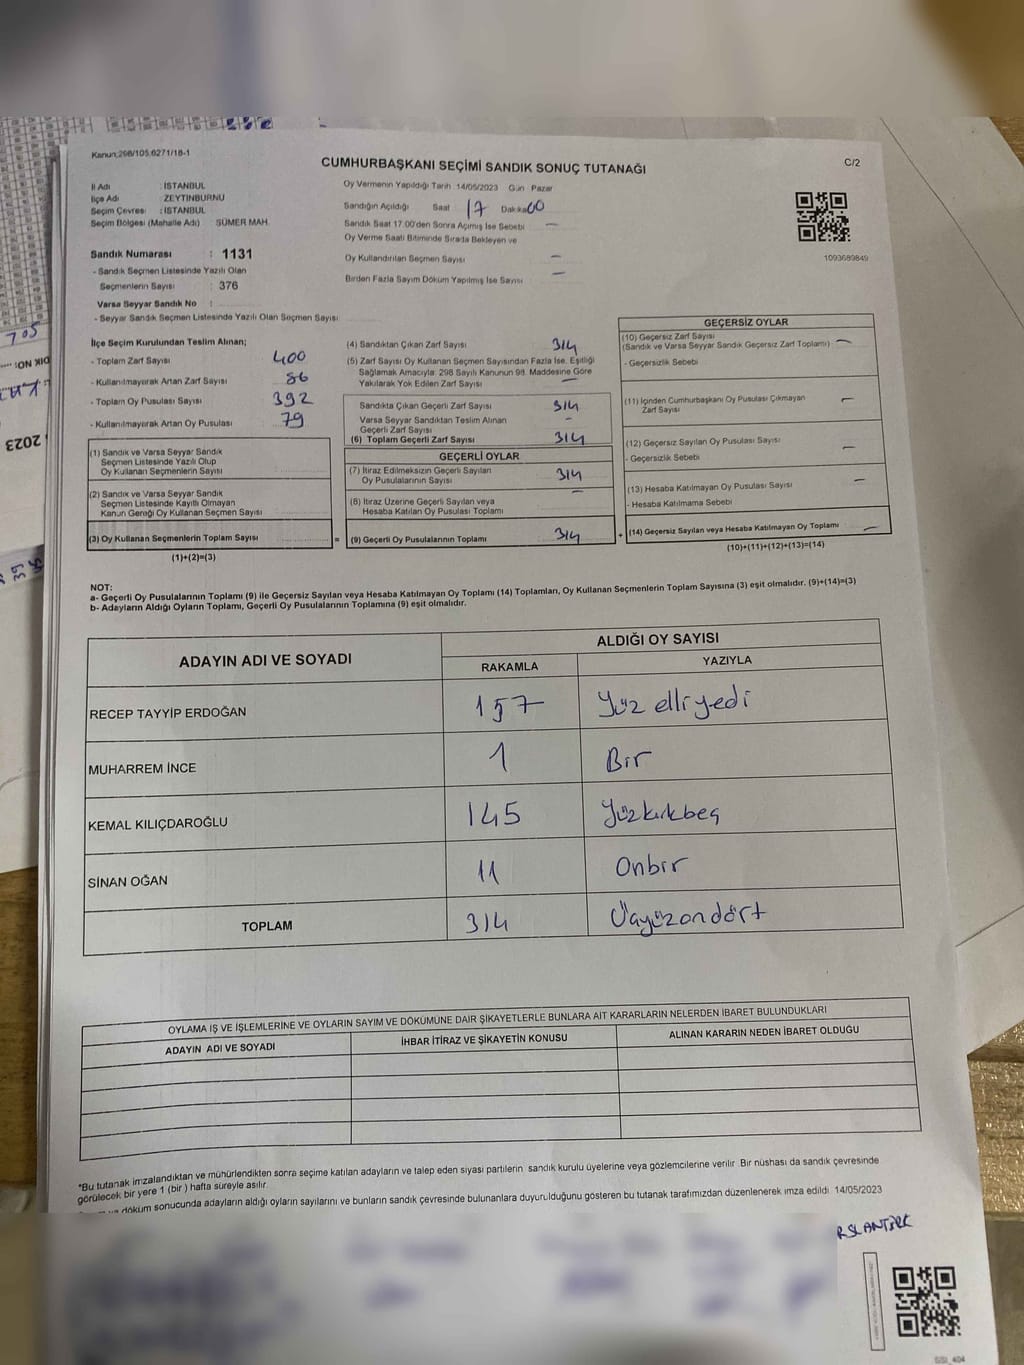 Kanun;298/105,6271/18-1
CUMHURBAŞKANI SEÇİMİ SANDIK SONUÇ TUTANAĞI
C/2
İl Adı : İSTANBUL
İlçe Adı : ZEYTİNBURNU
Seçim Çevresi : İSTANBUL
Seçim Bölgesi (Mahalle Adı) SÜMER MAH.
Oy Vermenin Yapıldığı Tarih 14/05/2023 Gün Pazar
Sandığın Açıldığı Saat 17 Dakika 00
Sandık Saat 17:00'den Sonra Açımış İse Sebebi —
Oy Verme Saati Bitiminde Sırada Bekleyen ve
Oy Kullandırılan Seçmen Sayısı —
Birden Fazla Sayım Döküm Yapılmış İse Sayısı —
1093689849
Sandık Numarası : 1131
- Sandık Seçmen Listesinde Yazılı Olan
Seçmenlerin Sayısı : 376
Varsa Seyyar Sandık No :
- Seyyar Sandık Seçmen Listesinde Yazılı Olan Seçmen Sayısı
İlçe Seçim Kurulundan Teslim Alınan;
- Toplam Zarf Sayısı 400
- Kullanılmayarak Artan Zarf Sayısı 86
- Toplam Oy Pusulası Sayısı 392
- Kullanılmayarak Artan Oy Pusulası 79
(1) Sandık ve Varsa Seyyar Sandık
Seçmen Listesinde Yazılı Olup
Oy Kullanan Seçmenlerin Sayısı
(2) Sandık ve Varsa Seyyar Sandık
Seçmen Listesinde Kayıtlı Olmayan
Kanun Gereği Oy Kullanan Seçmen Sayısı
(3) Oy Kullanan Seçmenlerin Toplam Sayısı =
(1)+(2)=(3)
(4) Sandıktan Çıkan Zarf Sayısı 314
(5) Zarf Sayısı Oy Kullanan Seçmen Sayısından Fazla İse, Eşitliği
Sağlamak Amacıyla; 298 Sayılı Kanunun 98. Maddesine Göre
Yakılarak Yok Edilen Zarf Sayısı —
Sandıkta Çıkan Geçerli Zarf Sayısı 314
Varsa Seyyar Sandıktan Teslim Alınan
Geçerli Zarf Sayısı -
(6) Toplam Geçerli Zarf Sayısı 314
GEÇERLİ OYLAR
(7) İtiraz Edilmeksizin Geçerli Sayılan
Oy Pusulalarının Sayısı 314
(8) İtiraz Üzerine Geçerli Sayılan veya
Hesaba Katılan Oy Pusulası Toplamı —
(9) Geçerli Oy Pusulalarının Toplamı 314 +
GEÇERSİZ OYLAR
(10) Geçersiz Zarf Sayısı
(Sandık ve Varsa Seyyar Sandık Geçersiz Zarf Toplamı) —
- Geçersizlik Sebebi
(11) İçinden Cumhurbaşkanı Oy Pusulası Çıkmayan
Zarf Sayısı —
(12) Geçersiz Sayılan Oy Pusulası Sayısı —
- Geçersizlik Sebebi
(13) Hesaba Katılmayan Oy Pusulası Sayısı —
- Hesaba Katılmama Sebebi
(14) Geçersiz Sayılan veya Hesaba Katılmayan Oy Toplamı —
(10)+(11)+(12)+(13)=(14)
NOT:
a- Geçerli Oy Pusulalarının Toplamı (9) ile Geçersiz Sayılan veya Hesaba Katılmayan Oy Toplamı (14) Toplamları, Oy Kullanan Seçmenlerin Toplam Sayısına (3) eşit olmalıdır. (9)+(14)=(3)
b- Adayların Aldığı Oyların Toplamı, Geçerli Oy Pusulalarının Toplamına (9) eşit olmalıdır.
ADAYIN ADI VE SOYADI
ALDIĞI OY SAYISI
RAKAMLA YAZIYLA
RECEP TAYYİP ERDOĞAN 157 Yüz elli yedi
MUHARREM İNCE 1 Bir
KEMAL KILIÇDAROĞLU 145 Yüzkırkbeş
SİNAN OĞAN 11 Onbir
TOPLAM 314 Üçyüzondört
OYLAMA İŞ VE İŞLEMLERİNE VE OYLARIN SAYIM VE DÖKÜMÜNE DAİR ŞİKAYETLERLE BUNLARA AİT KARARLARIN NELERDEN İBARET BULUNDUKLARI
ADAYIN ADI VE SOYADI İHBAR İTİRAZ VE ŞİKAYETİN KONUSU ALINAN KARARIN NEDEN İBARET OLDUĞU
*Bu tutanak imzalandıktan ve mühürlendikten sonra seçime katılan adayların ve talep eden siyasi partilerin sandık kurulu üyelerine veya gözlemcilerine verilir. Bir nüshası da sandık çevresinde
görülecek bir yere 1 (bir) hafta süreyle asılır.
döküm sonucunda adayların aldığı oyların sayılarını ve bunların sandık çevresinde bulunanlara duyurulduğunu gösteren bu tutanak tarafımızdan düzenlenerek imza edildi. 14/05/2023
705
2023